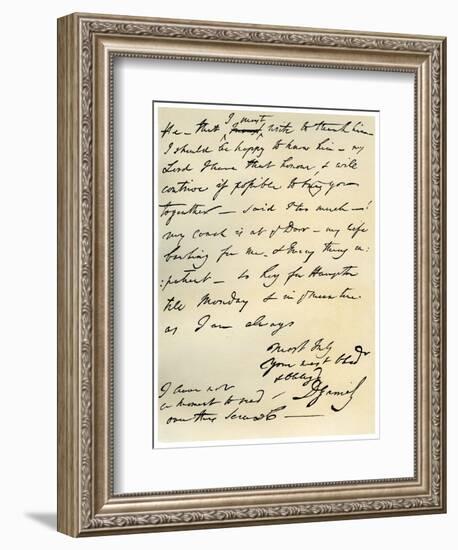 He - that I must write to thank him -
I should be happy to know him - my
Lord I have that honour, & will
contrive if possible to bring you
together - said I too much - !
my coach is at ye Door - my wife
bawling for me, & Every thing im:
:patient - so hey for Hampton
till Monday & in ye mean time
as I am always
Most truly
Your most Obedr
& Oblig'd
D Garrick
I have not
a moment to read
over this Scrawl -